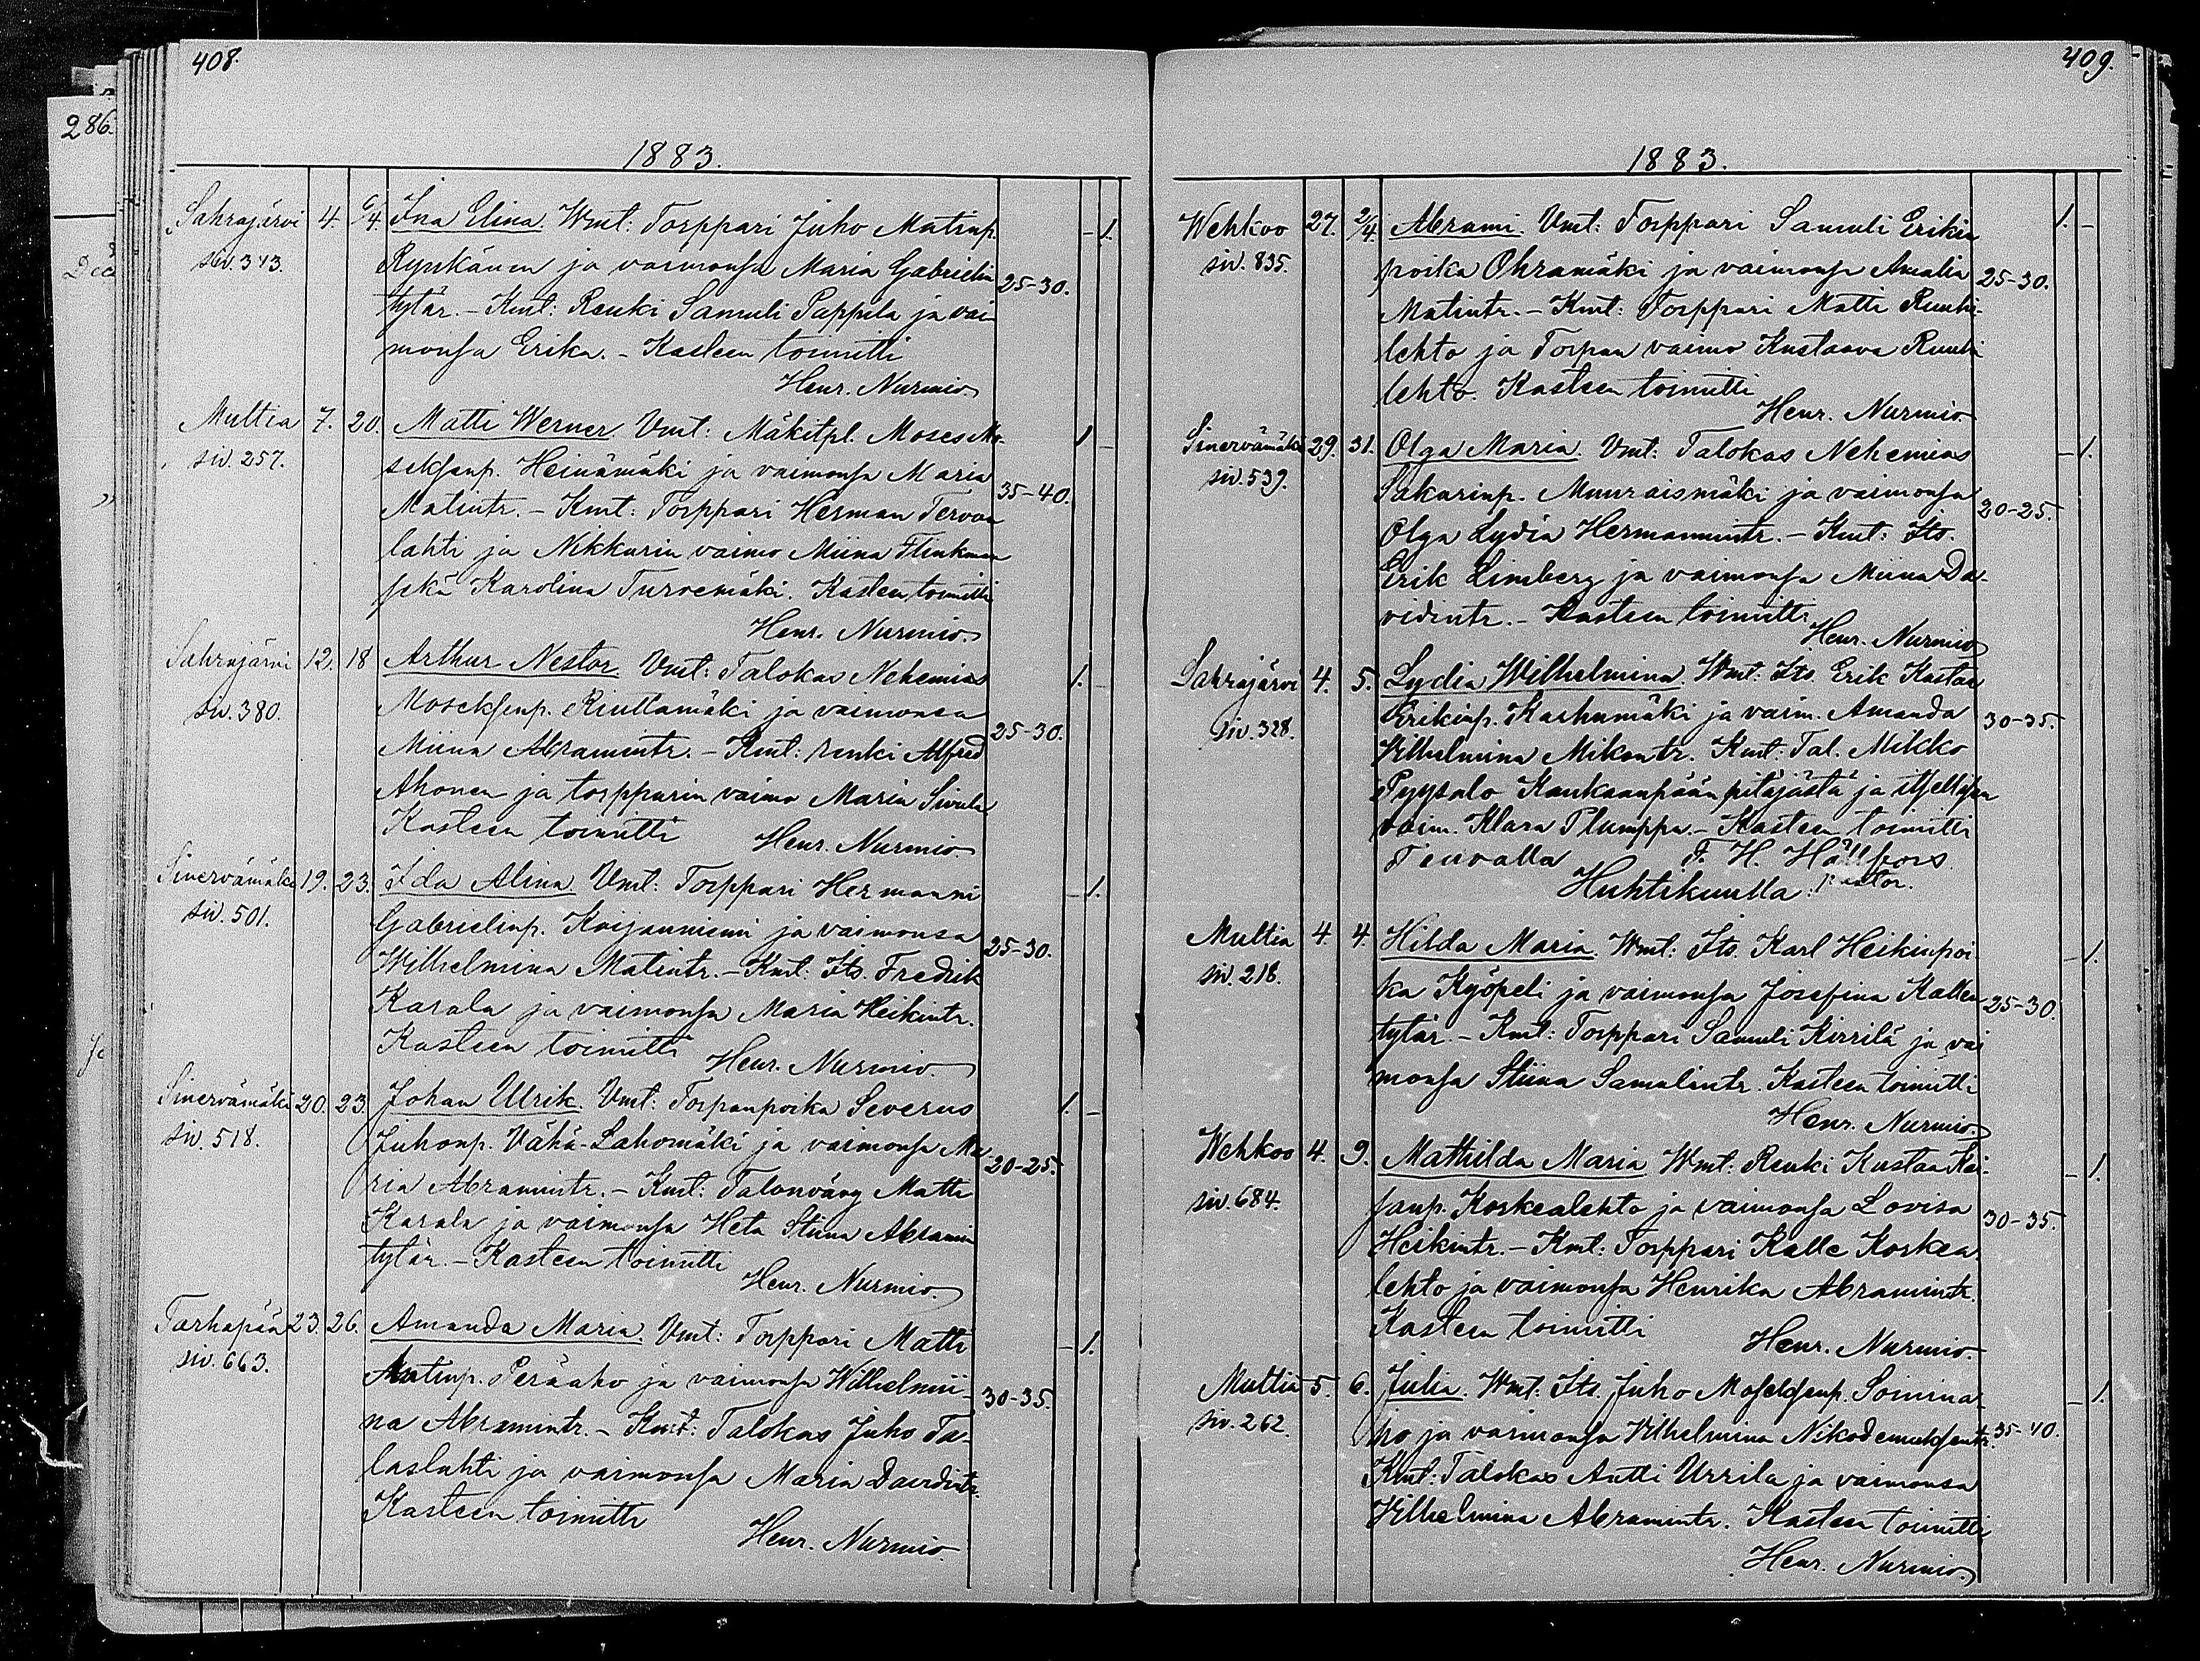 408.
286.
Dec
1883.
Sahrajärvi 4. 6/4. Ina Elina. Wmt: Torppari Juho Matinp. - 1.
siv. 343. Rynkänen ja vaimonsa Maria Gabrielin 25-30.
tytär. - Kmt: Renki Samuli Pappila ja vai
monsa Erika. - Kasteen toimitti
Henr. Nurmio.
Multia 7. 20. Matti Werner. Vmt: Mäkitpl. Moses Mo- 1 -
siv. 257. seksenp. Heinämäki ja vaimonsa Maria 35-40.
Matintr. - Kmt: Torppari Herman Tervan
lahti ja Nikkarin vaimo Miina Flinkman
sekä Karolina Turvemäki. Kasteen toimitti
Henr. Nurmio.
Sahrajärvi 12. 18 Arthur Nestor. Vmt: Talokas Nehemias 1. -
siv. 380. Moseksenp. Riuttamäki ja vaimonsa 25-30.
Miina Abramintr. - Kmt: renki Alfred
Ahonen ja torpparin vaimo Maria Sivula
Kasteen toimitti Henr. Nurmio.
Sinervämäki 19. 23. Ida Alina. Vmt: Torppari Hermanni - 1.
siv. 501. Gabrielinp. Koijanniemi ja vaimonsa 25-30.
Wilhelmina Matintr. - Kmt: Its. Fredrik
Karala ja vaimonsa Maria Heikintr.
Kasteen toimitti Henr. Nurmio.
Sinervämäki 20. 23. Johan Ulrik. Vmt: Torpanpoika Severus 1. -
siv. 518. Juhonp. Vähä-Lahomäki ja vaimonsa Ma- 20-25.
ria Abramintr. - Kmt: Talonvävy Matti
Karala ja vaimonsa Heta Stiina Abramin
tytär. - Kasteen toimitti
Henr. Nurmio.
Tarhapää 23. 26. Amanda Maria. Vmt: Torppari Matti - 1.
siv. 663. Matinp. Peräaho ja vaimonsa Wilhelmii- 30-35.
na Abramintr. - Kmt: Talokas Juho Ta-
laslahti ja vaimonsa Maria Davidintr.
Kasteen toimitti
Henr. Nurmio.
409.
1883.
Wehkoo 27. 2/4. Abrami. Vmt: Torppari Samuli Erikin 1. -
siv. 835. poika Ohramäki ja vaimonsa Amalia 25-30.
Matintr. - Kmt: Torppari Matti Ruuhi-
lehto ja Torpan vaimo Kustaava Ruuhi
lehto. Kasteen toimitti
Henr. Nurmio.
Sinervämäki 29. 31. Olga Maria. Vmt: Talokas Nehemias - 1.
siv. 539. Sakarinp. Muuraismäki ja vaimonsa 20-25.
Olga Lydia Hermannintr. - Kmt: Its.
Erik Limberg ja vaimonsa Miina Da-
vidintr. - Kasteen toimitti
Henr. Nurmio
Sahrajärvi 4. 5. Lydia Wilhelmina. Wmt: Its. Erik Kustaa
siv. 328. Erikinp. Karhumäki ja vaim. Amanda 30-35.
Vilhelmina Mikontr. Kmt: Tal. Mikko
Pyysalo Kankaanpään pitäjästä ja itsellisen
vaim. Klara Plumppu. - Kasteen toimitti
Teuvalla F. H. Hällfors
pastor.
Huhtikuulla.
Multia 4. 4. Hilda Maria. Wmt: Its. Karl Heikinpoi- - 1.
siv. 218. ka Kyöpeli ja vaimonsa Josefina Kallen 25-30.
tytär. - Kmt: Torppari Samuli Kirrilä ja vai
monsa Stiina Samulintr. Kasteen toimitti
Henr. Nurmio.
Wehkoo 4. 9. Mathilda Maria. Wmt: Renki Kustaa Kai- - 1.
siv. 684. sanp. Koskealehto ja vaimonsa Lovisa 30-35.
Heikintr. - Kmt: Torppari Kalle Koskea-
lehto ja vaimonsa Henrika Abramintr.
Kasteen toimitti
Henr. Nurmio.
Multia 5. 6. Julia. Wmt: Its. Juho Moseksenp. Soinina- - 1.
siv. 262. ho ja vaimonsa Vilhelmina Nikodemuksentr. 35-40.
Kmt: Talokas Antti Urrila ja vaimonsa
Vilhelmina Abramintr. Kasteen toimitti
Henr. Nurmio.